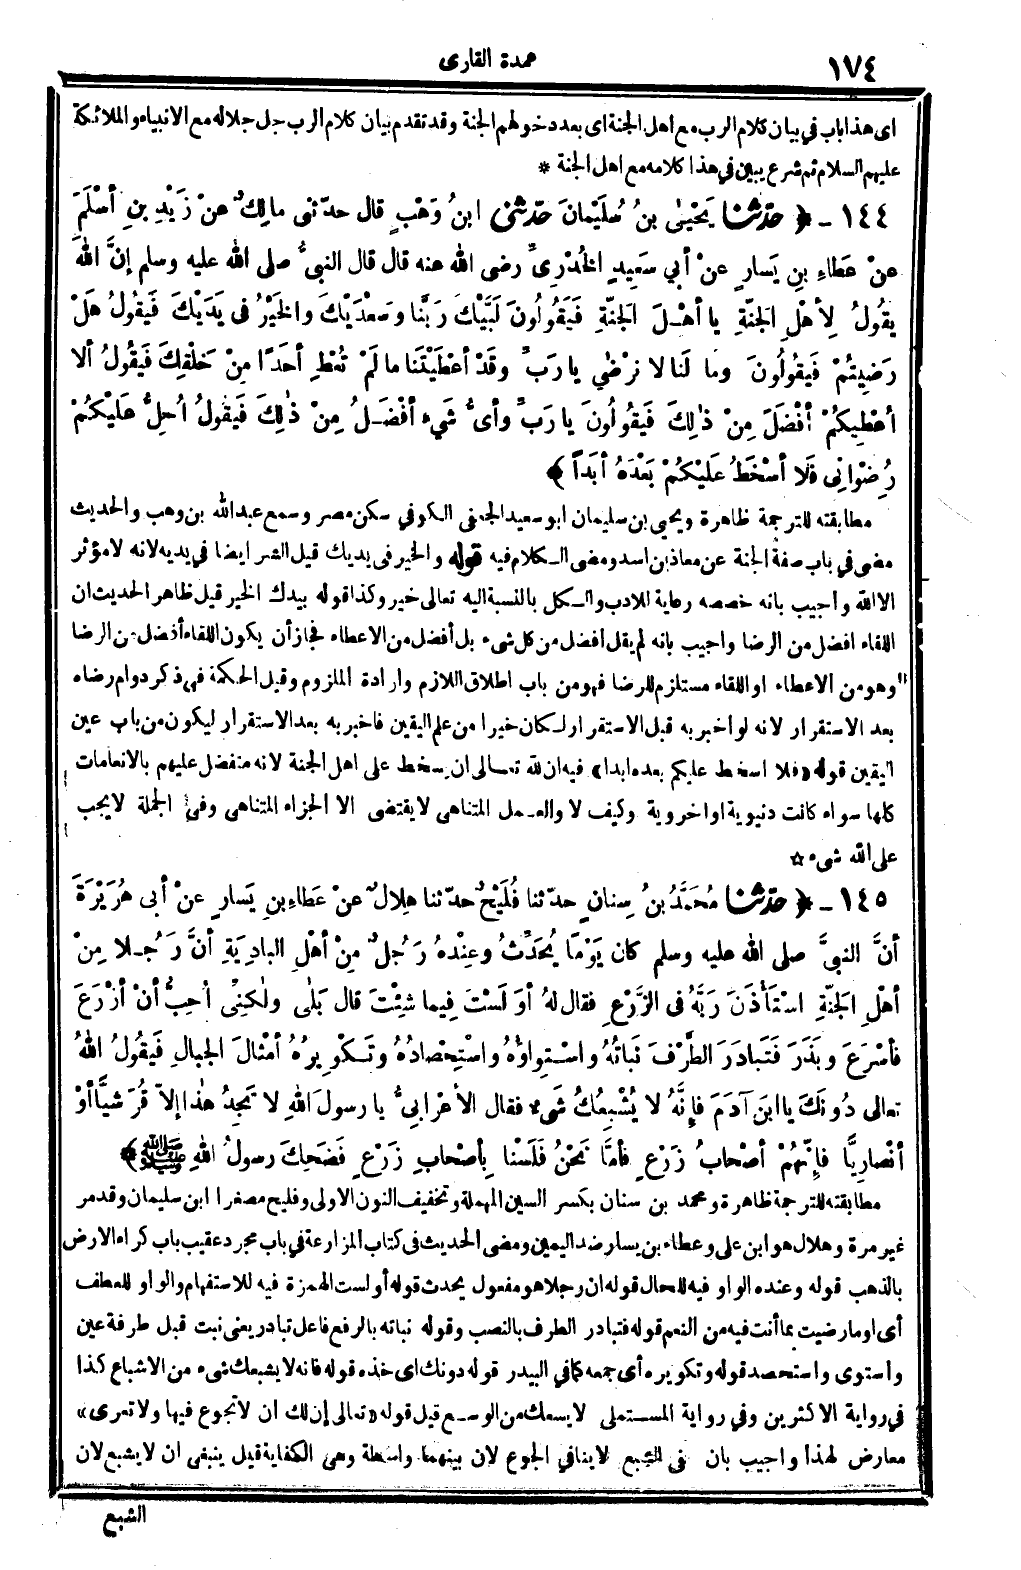 ١٧٤
عمدة القارى
اى هذا باب في بيان كلام الرب مع اهل الجنة اى بعد دخولهم الجنة وقد تقدم بيان كلام الرب جل جلاله مع الانبياء والملائكة
عليهم السلام ثم شرع يبين في هذا كلامه مع اهل الجنة *
١٤٤ - ﴿ حَدَّثَنَا يَحْيَىٰ بنُ سُلَيْمَانَ حَدَّثَنِى ابنُ وَهْبٍ قال حدّثنى مالِكٌ عنْ زَيْدِ بنِ أسْلَمَ
عنْ عَطاءِ بنِ يَسارٍ عنْ أبي سَعِيدٍ الخُدْرِىِّ رضى الله عنه قال قال النبىُّ صلى الله عليه وسلم إنَّ اللهَ
يقُولُ لِأهْلِ الجَنَّةِ يا أهْـلَ الجَنَّةِ فَيَقُولُونَ لَبَّيْكَ رَبَّنا وسَعْدَيْكَ والخَيْرُ فى يَدَيْكَ فَيقُولُ هَلْ
رَضِيتُمْ فَيقُولُونَ وما لَنا لا نرْضٰي يارَبِّ وقَدْ أعْطَيْتَنا مالَمْ تُعْطِ أحَدًا مِنْ خَلْقِكَ فَيقُولُ ألا
أُعْطِيكُمْ أفْضَلَ مِنْ ذٰلِكَ فَيقُولُونَ يارَبِّ وأىُّ شَيءٍ أفْضَـلُ مِنْ ذٰلِكَ فَيقُولُ أُحِلُّ عَلَيْكُمْ
رِضْوانِى فَلا أسْخَطُ عَلَيْكُمْ بَعْدَهُ أبَدًا ﴾
مطابقته للترجمة ظاهرة ويحيى بن سليمان ابو سعيد الجعفى الكوفي سكن مصر وسمع عبد الله بن وهب والحديث
مضى في باب صفة الجنة عن معاذ بن اسد ومضى الـكلام فيه قوله والخير فى يديك قيل الشر ايضا في يديه لانه لا مؤثر
الا الله واجيب بانه خصصه رعاية للادب والـكل بالنسبة اليه تعالى خير وكذا قوله بيدك الخير قيل ظاهر الحديث ان
اللقاء افضل من الرضا واجيب بانه لم يقل أفضل من كل شيء بل أفضل من الاعطاء فجاز أن يكون اللقاء أفضل من الرضا
وهو من الاعطاء او اللقاء مستلزم للرضا فهو من باب اطلاق اللازم وارادة الملزوم وقيل الحكمة فى ذكر دوام رضاه
بعد الاستقرار لانه لو أخبر به قبل الاستقرار لـكان خيرا من علم اليقين فاخبر به بعد الاستقرار ليكون من باب عين
اليقين قوله «فلا اسخط عليكم بعده ابدا» فيه ان لله تعـالى ان يسخط على اهل الجنة لانه متفضل عليهم بالانعامات
كلها سواء كانت دنيوية او اخروية وكيف لا والعـمل المتناهى لا يقتضى الا الجزاء المتناهى وفي الجملة لا يجب
على الله شيء ☆
١٤٥ - ﴿ حَدَّثَنَا مُحَمَّدُ بنُ سِنانٍ حدّثنا فُلَيْحٌ حدّثنا هِلالٌ عنْ عَطاءِ بنِ يَسارٍ عنْ أبى هُرَيْرَةَ
أنَّ النبىَّ صلى الله عليه وسلم كان يَوْمًا يُحَدِّثُ وعِنْدهُ رَجُلٌ مِنْ أهْلِ البادِيَةِ أنَّ رَجُـلا مِنْ
أهْلِ الجَنَّةِ اسْتَأْذَنَ رَبَّهُ فى الزَّرْعِ فقال لهُ أوَلَسْتَ فِيما شِئْتَ قال بَلٰى ولٰكِنِّى أُحِبُّ أنْ أزْرَعَ
فأسْرَعَ وبَذَرَ فَتَبادَرَ الطَّرْفَ نَباتُهُ واسْتِواؤُهُ واسْتِحْصادُهُ وتَـكْوِيرُهُ أمْثالَ الجِبالِ فَيقُولُ اللهُ
تعالى دُونَكَ يا ابنَ آدَمَ فإنَّهُ لا يُشْبِعُكَ شيءٌ فقال الأعْرابىُّ يارسولَ اللهِ لا تَجِدُ هٰذا إلاّ قُرَشيًّا أوْ
أنْصاريًّا فإنَّهُمْ أصْحابُ زَرْعٍ فأمَّا نَحْنُ فَلَسْنا بِأصْحابِ زَرْعٍ فَضَحِكَ رسولُ اللهِ ﷺ ﴾
مطابقته للترجمة ظاهرة ومحمد بن سنان بكسر السين المهملة وتخفيف النون الاولى وفليح مصغرا ابن سليمان وقد مر
غير مرة وهلال هو ابن على وعطاء بن يسار ضد اليمين ومضى الحديث فى كتاب المزارعة في باب مجرد عقيب باب كراء الارض
بالذهب قوله وعنده الواو فيه للحال قوله ان رجلا هو مفعول يحدث قوله أولست الهمزة فيه للاستفهام والواو للعطف
أى او ما رضيت بما أنت فيه من النعم قوله فتبادر الطرف بالنصب وقوله نباته بالرفع فاعل تبادر يعنى نبت قبل طرفة عين
واستوى واستحصد قوله وتكويره أى جمعه كما في البيدر قوله دونك اى خذه قوله فانه لا يشبعك شىء من الاشباع كذا
في رواية الاكثرين وفي رواية المستملى لا يسعك من الوسـع قيل قوله «تعالى إن لك ان لا تجوع فيها ولا تعرى»
معارض لهذا واجيب بان نفى الشبع لا ينافي الجوع لان بينهما واسطة وهى الكفاية قيل ينبغى ان لا يشبع لان
الشبع